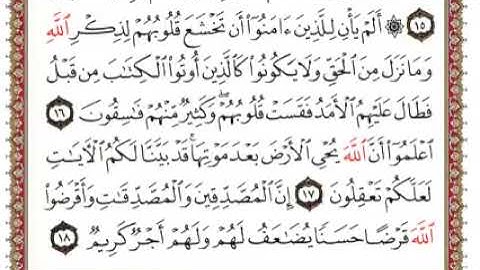 ١٥ ۞ أَلَمْ يَأْنِ لِلَّذِينَ ءَامَنُوٓا۟ أَن تَخْشَعَ قُلُوبُهُمْ لِذِكْرِ ٱللَّهِ
وَمَا نَزَلَ مِنَ ٱلْحَقِّ وَلَا يَكُونُوا۟ كَٱلَّذِينَ أُوتُوا۟ ٱلْكِتَٰبَ مِن قَبْلُ
فَطَالَ عَلَيْهِمُ ٱلْأَمَدُ فَقَسَتْ قُلُوبُهُمْ ۖ وَكَثِيرٌ مِّنْهُمْ فَٰسِقُونَ ١٦
ٱعْلَمُوٓا۟ أَنَّ ٱللَّهَ يُحْىِ ٱلْأَرْضَ بَعْدَ مَوْتِهَا ۚ قَدْ بَيَّنَّا لَكُمُ ٱلْـَٔايَٰتِ
لَعَلَّكُمْ تَعْقِلُونَ ١٧ إِنَّ ٱلْمُصَّدِّقِينَ وَٱلْمُصَّدِّقَٰتِ وَأَقْرَضُوا۟
ٱللَّهَ قَرْضًا حَسَنًا يُضَٰعَفُ لَهُمْ وَلَهُمْ أَجْرٌ كَرِيمٌ ١٨